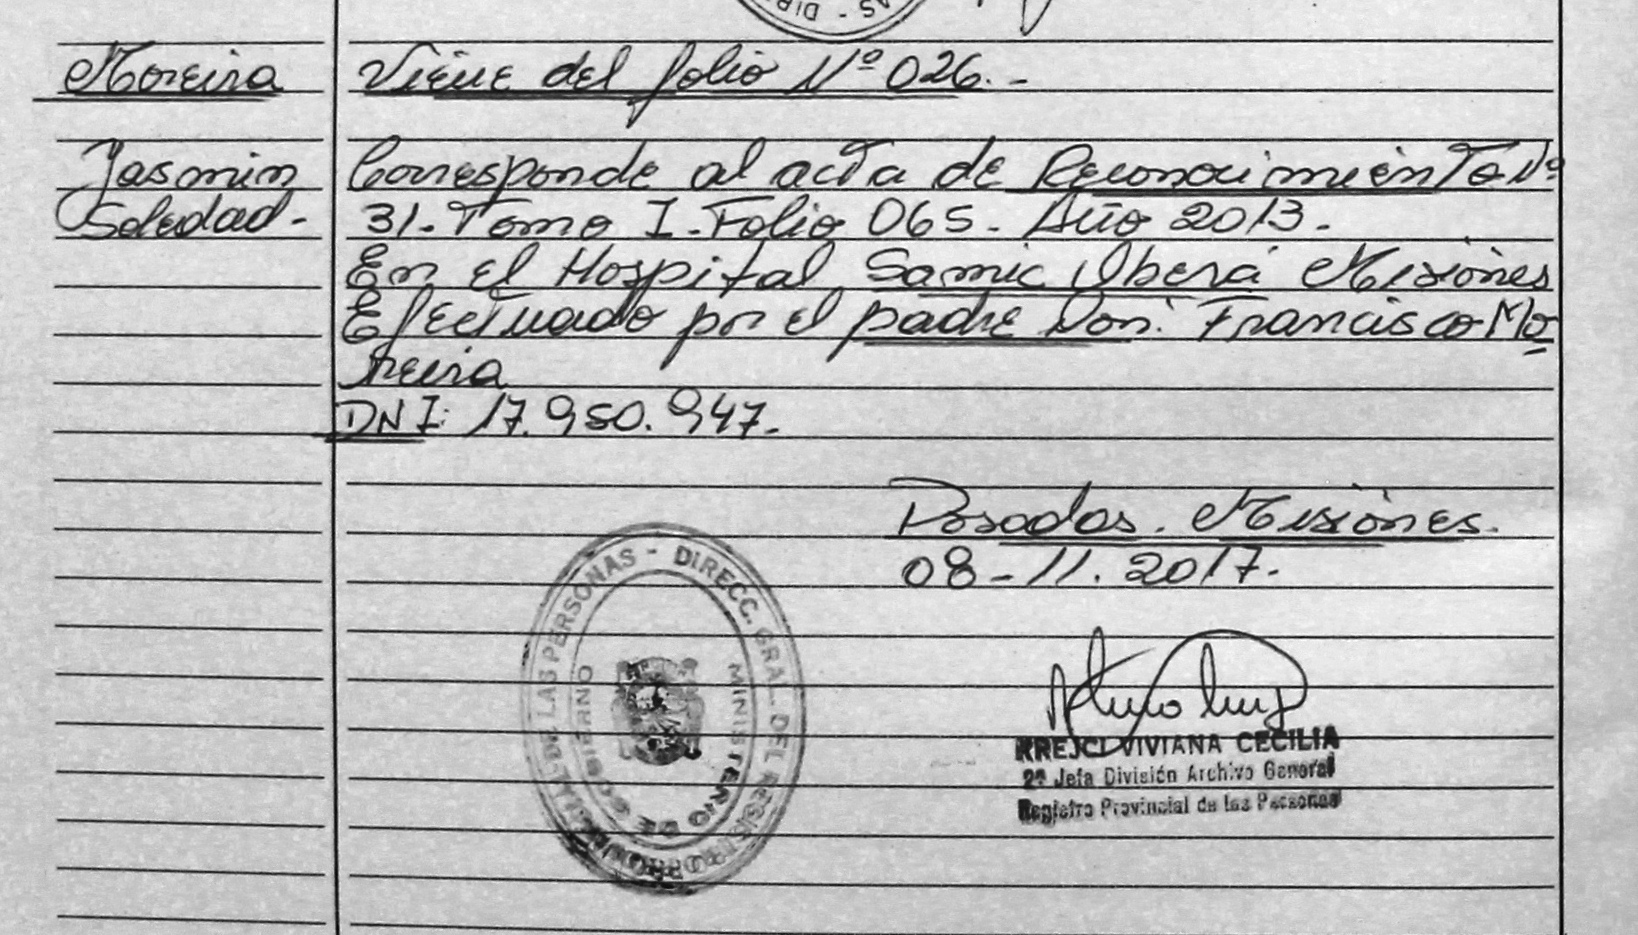 DIR
Moreira
Viene del folio Nº 026.-
Yasmin
Soledad.-
Corresponde al acta de Reconocimiento Nº
31. Tomo I. Folio 065. Año 2013.
En el Hospital Samic Oberá Misiones
Efectuado por el padre Don: Francisco Mo
reira
DNI: 17.950.947.
Posadas. Misiones.
08-11.2017.
DIRECC. GRAL. DEL REGISTRO PROVINCIAL DE LAS PERSONAS -
MINISTERIO DE GOBIERNO
KREJCI VIVIANA CECILIA
2ª Jefa División Archivo General
Registro Provincial de las Personas